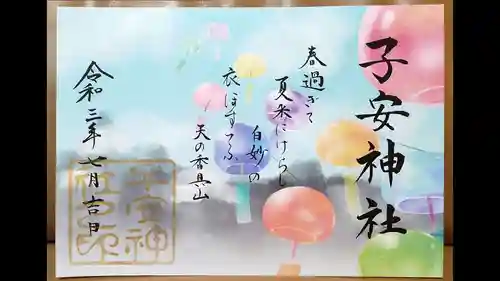 子安神社
春過ぎて
夏来にけらし
白妙の
衣ほすてふ
天の香具山
令和三年七月吉日
子安神
社之印